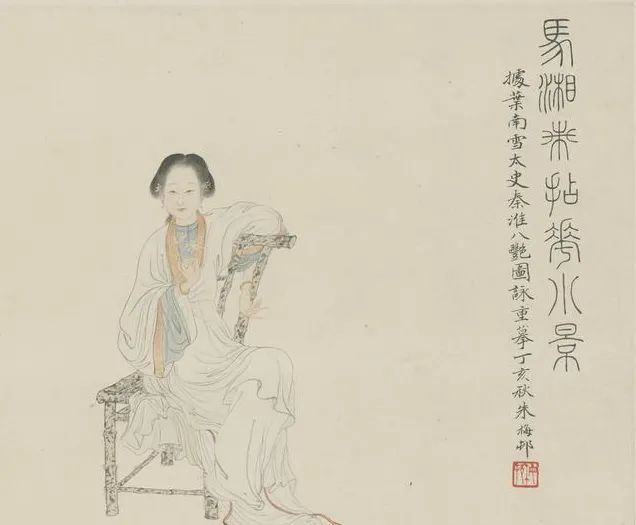 馬湘拈華小景
據葉南雪太史秦淮八艷圖詠重摹丁亥秋朱梅邨